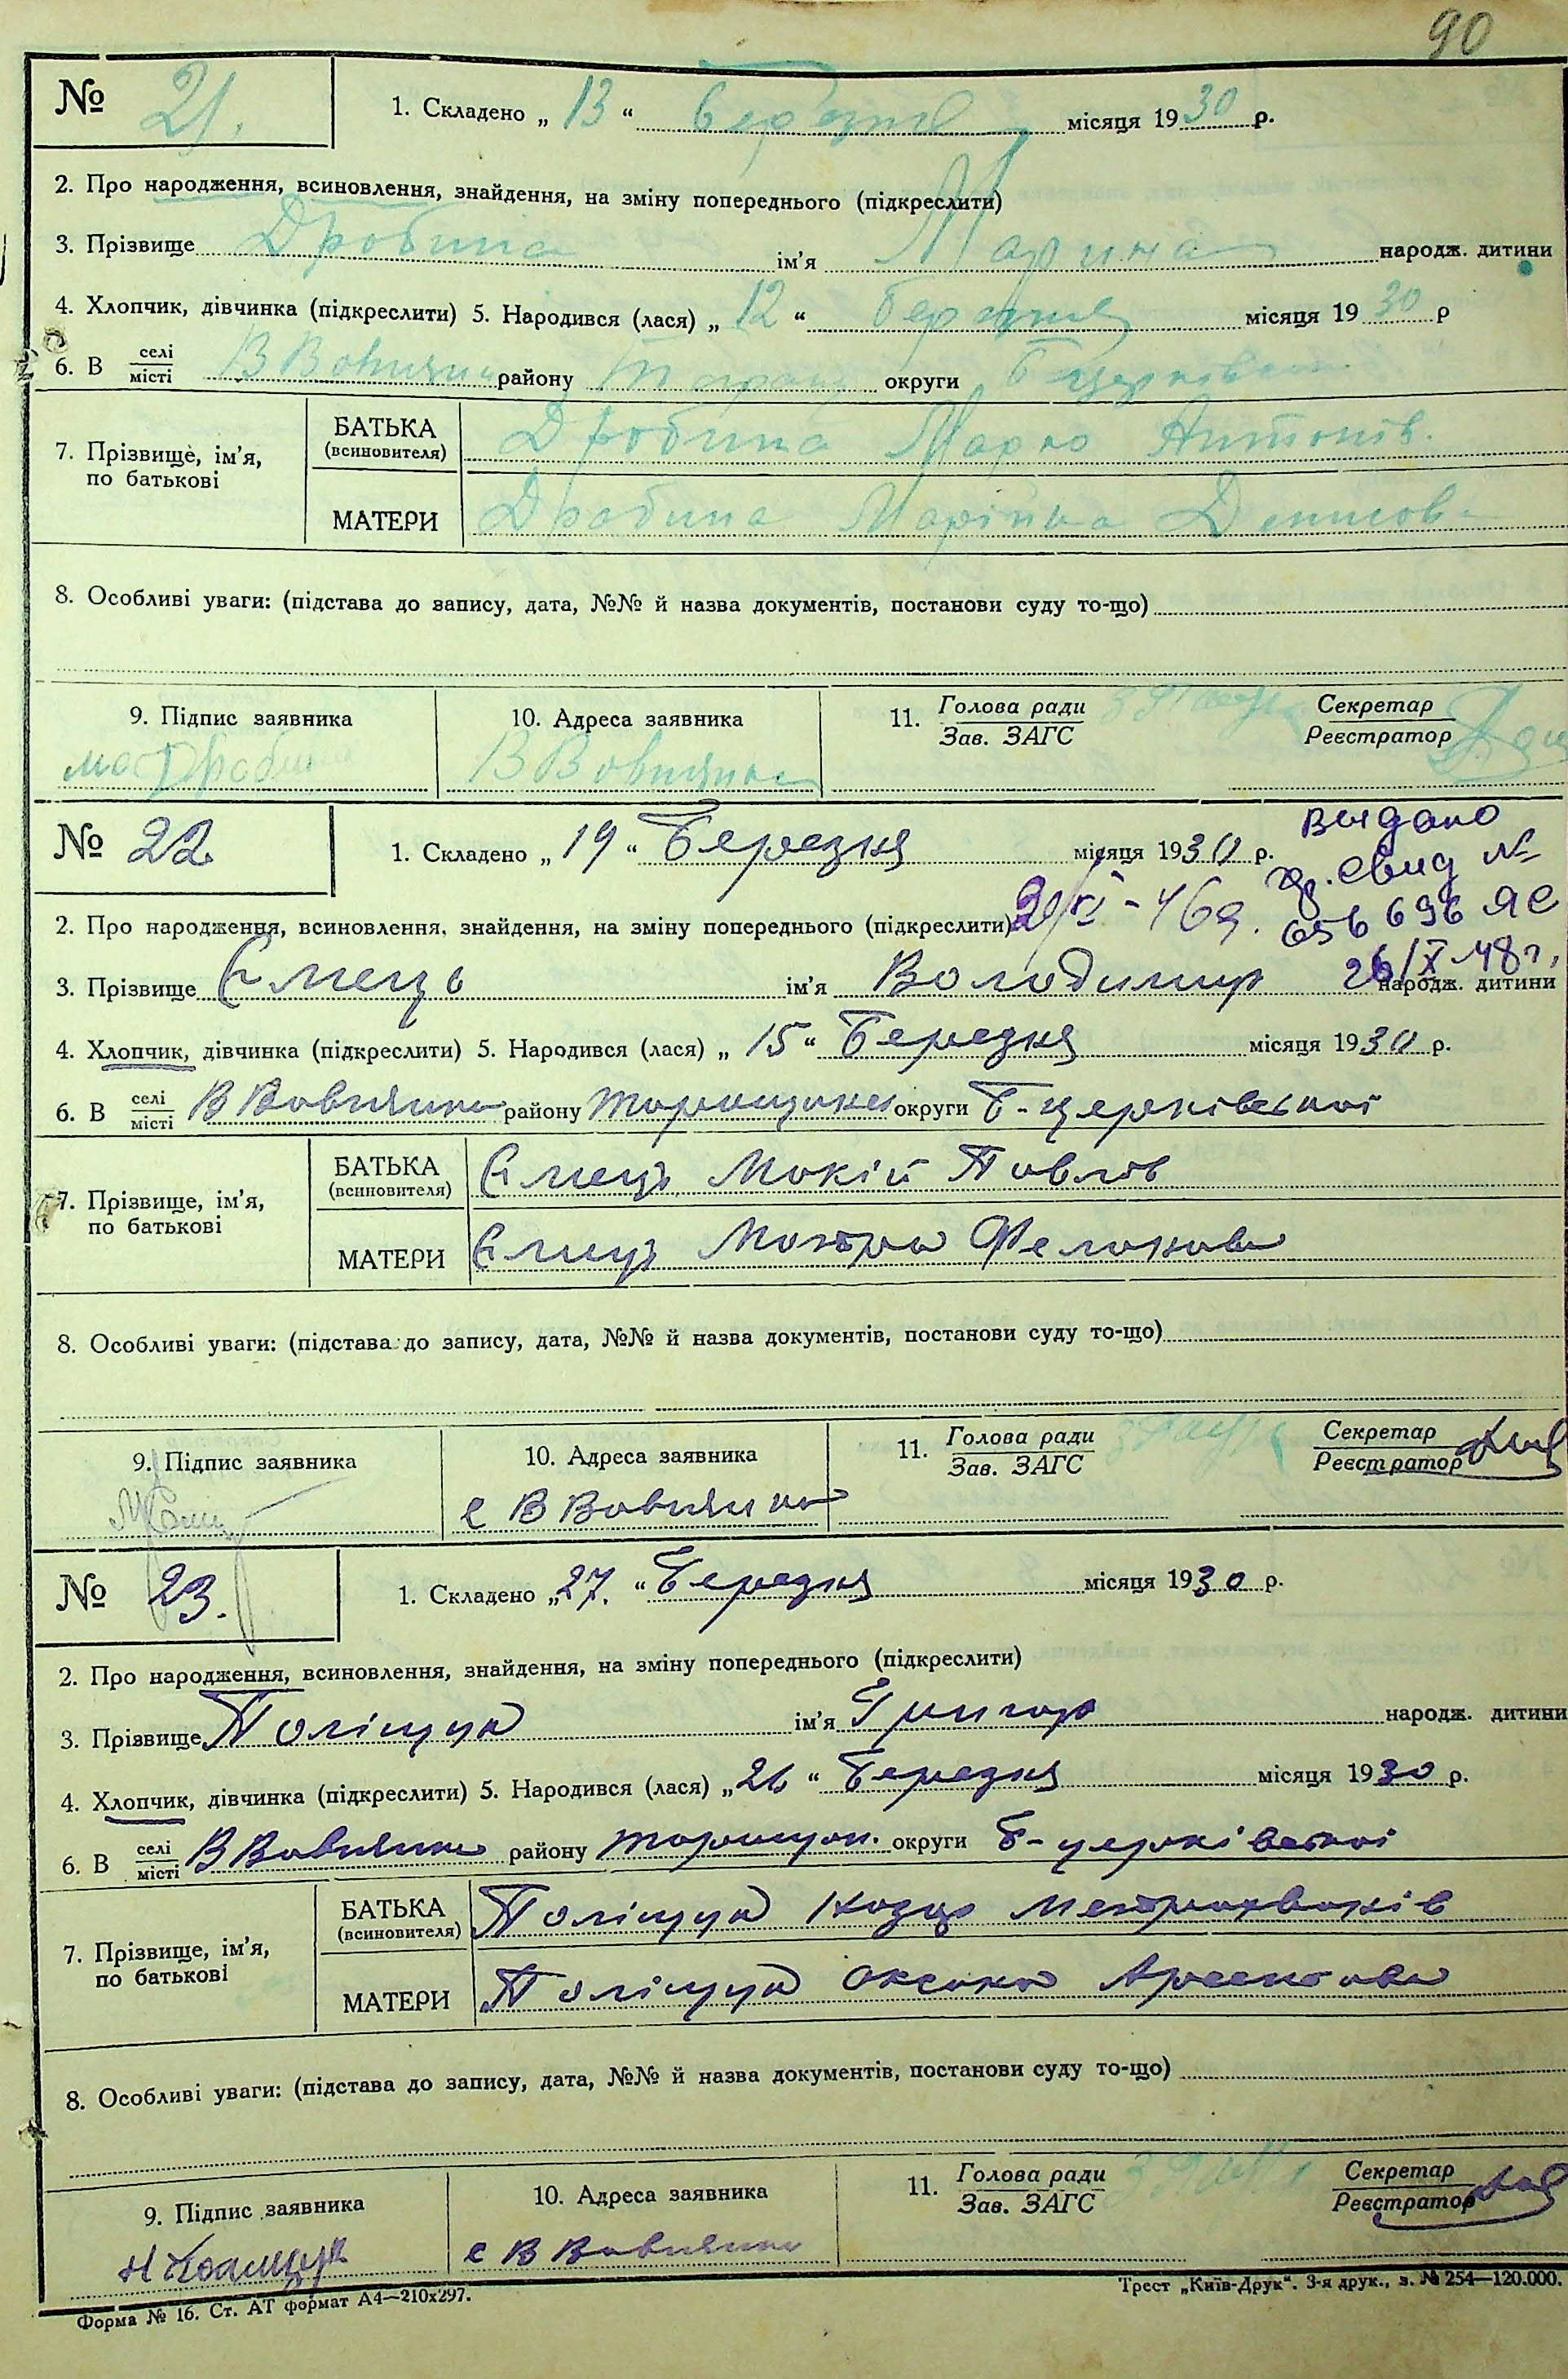 90
№ 21. 1. Складено „ 13 “ березня місяця 1930 р.
2. Про народження, всиновлення, знайдення, на зміну попереднього (підкреслити)
3. Прізвище Дробина ім'я Марина народж. дитини
4. Хлопчик, дівчинка (підкреслити) 5. Народився (лася) „ 12 “ березня місяця 1930 р
6. В селі місті В Вовнянка району Таращ округи Б церківс
7. Прізвище, ім'я, по батькові
БАТЬКА (всиновителя) Дробина Марко Антонів.
МАТЕРИ Дробина Марійка Денисова
8. Особливі уваги: (підстава до запису, дата, №№ й назва документів, постанови суду то-що)
9. Підпис заявника 10. Адреса заявника 11. Голова ради Зав. ЗАГС Секретар Реєстратор
Дробина В Вовнянка
№ 22. 1. Складено „ 19 “ Березня місяця 1930 р. выдано
свид №
2. Про народження, всиновлення, знайдення, на зміну попереднього (підкреслити) 656696 ЯС
3. Прізвище Ємець ім'я Володимир 26/X-48г, народж. дитини
4. Хлопчик, дівчинка (підкреслити) 5. Народився (лася) „ 15 “ Березня місяця 1930 р.
6. В селі місті В Вовнянка району Таращанс округи Б-церківської
7. Прізвище, ім'я, по батькові
БАТЬКА (всиновителя) Ємець Мокій Павлів
МАТЕРИ Ємець Мотря
8. Особливі уваги: (підстава до запису, дата, №№ й назва документів, постанови суду то-що)
9. Підпис заявника 10. Адреса заявника 11. Голова ради Зав. ЗАГС Секретар Реєстратор
с В Вовнянка
№ 23. 1. Складено „ 27. “ Березня місяця 1930 р.
2. Про народження, всиновлення, знайдення, на зміну попереднього (підкреслити)
3. Прізвище Поліщук ім'я Григор народж. дитини
4. Хлопчик, дівчинка (підкреслити) 5. Народився (лася) „ 26 “ Березня місяця 1930 р.
6. В селі місті В Вовнянка району Таращан. округи Б-церківської
7. Прізвище, ім'я, по батькові
БАТЬКА (всиновителя) Поліщук Назар
МАТЕРИ Поліщук Оксана Арсентова
8. Особливі уваги: (підстава до запису, дата, №№ й назва документів, постанови суду то-що)
9. Підпис заявника 10. Адреса заявника 11. Голова ради Зав. ЗАГС Секретар Реєстратор
с В Вовнянка
Форма № 16. Ст. АТ формат А4—210х297. Трест „Київ-Друк“. 3-я друк., з. № 254—120.000.